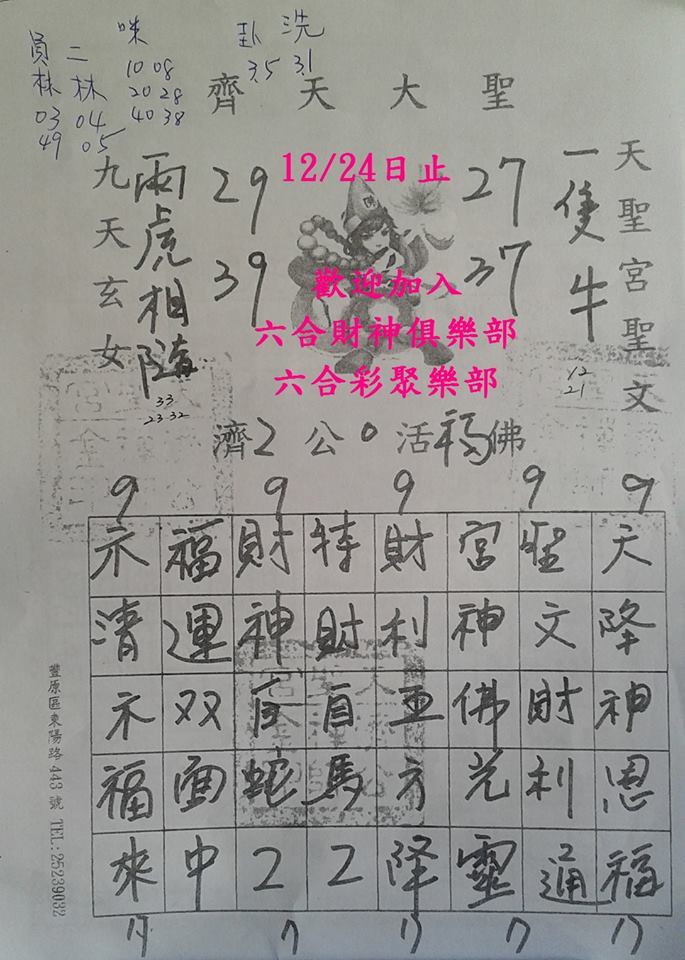 咪 卦 洗
員 二 10 08 35 31
林 林 20 28
03 04 40 38
49 05
齊天大聖
天聖宮聖文
一隻牛
12
21
27
37
12/24日止
歡迎加入
六合財神俱樂部
六合彩聚樂部
29
39
兩虎相隨
33
23 32
九天玄女
濟2公0活福佛
9 9 9 9 9
天降神恩福
聖文財利通
宮神佛光靈
財利亚方降
特財自馬2
財神自蛇2
福運双面中
示清示福來
豐原區東陽路443號 TEL:25239032